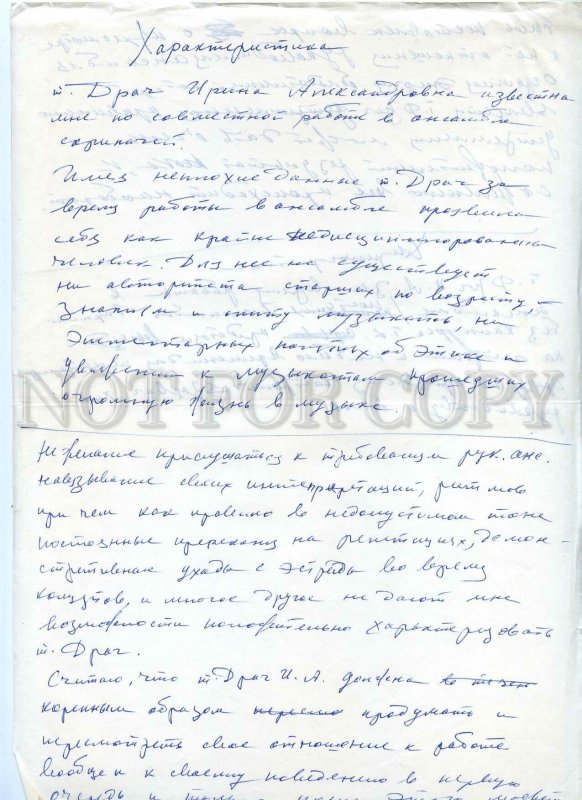 Характеристика
т. Драч Ирина Александровна известна
мне по совместной работе в ансамбле
скрипачей.
Имея неплохие данные т. Драч за
время работы в ансамбле проявила
себя как крайне недисциплинированный
человек. Для нее не существует
ни авторитета старших по возрасту,
знаниям и опыту музыкантов, ни
элементарных понятий об этике и
уважении к музыкантам прошедших
огромную жизнь в музыке.
NOT FOR COPY
Не желание прислушаться к требованиям рук. анс.
навязывание своих интерпретаций, ритмов
при чем как правило в недопустимом тоне
постоянные пререкания на репетициях, демон-
стративные уходы с эстрады во время
концертов, и многое другое не дают мне
возможности положительно характеризовать
т. Драч.
Считаю, что т. Драч И. А. должна
коренным образом продумать и
пересмотреть свое отношение к работе
вообще и к своему поведению в первую
очередь и только после этого может